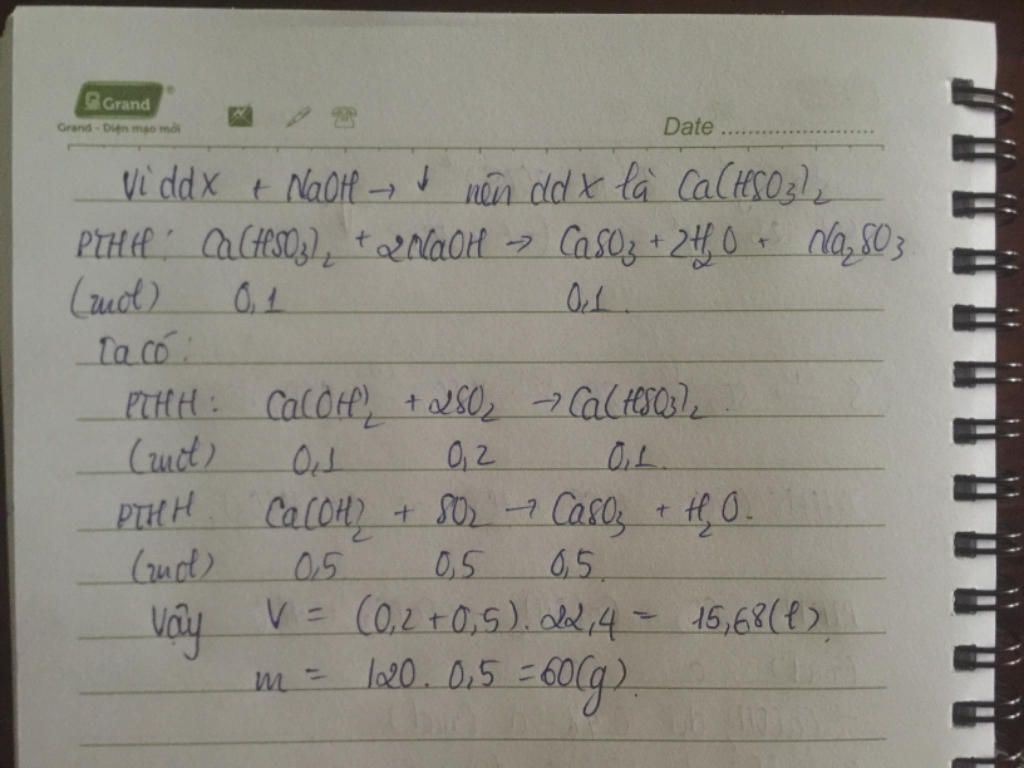 Grand
Grand - Diện mạo mới
Date
Vì ddX + NaOH → ↓ nên ddX là Ca(HSO3)2
PTHH: Ca(HSO3)2 + 2NaOH → CaSO3 + 2H2O + Na2SO3
(mol) 0,1 0,1
Ta có:
PTHH: Ca(OH)2 + 2SO2 → Ca(HSO3)2.
(mol) 0,1 0,2 0,1
PTHH Ca(OH)2 + SO2 → CaSO3 + H2O.
(mol) 0,5 0,5 0,5
Vậy V = (0,2 + 0,5). 22,4 = 15,68(l)
m = 120. 0,5 = 60(g)